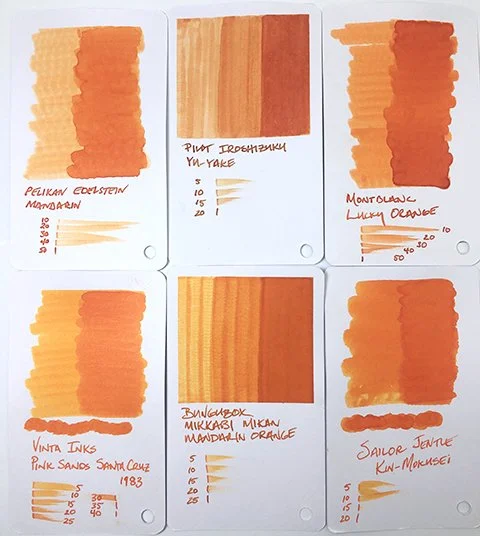 PELIKAN EDELSTEIN
MANDARIN
10
20
30
40
50
PILOT IROSHIZUKU
YU-YAKE
5
10
15
20
MONTBLANC
LUCKY ORANGE
10
20
30
40
50
VINTA INKS
PINK SANDS SANTA CRUZ
1983
5
10
15
20
25
30
35
40
BUNGUBOX
MIKKABI MIKAN
MANDARIN ORANGE
5
10
15
20
SAILOR JENTLE
KIN-MOKUSEI
5
10
15
20